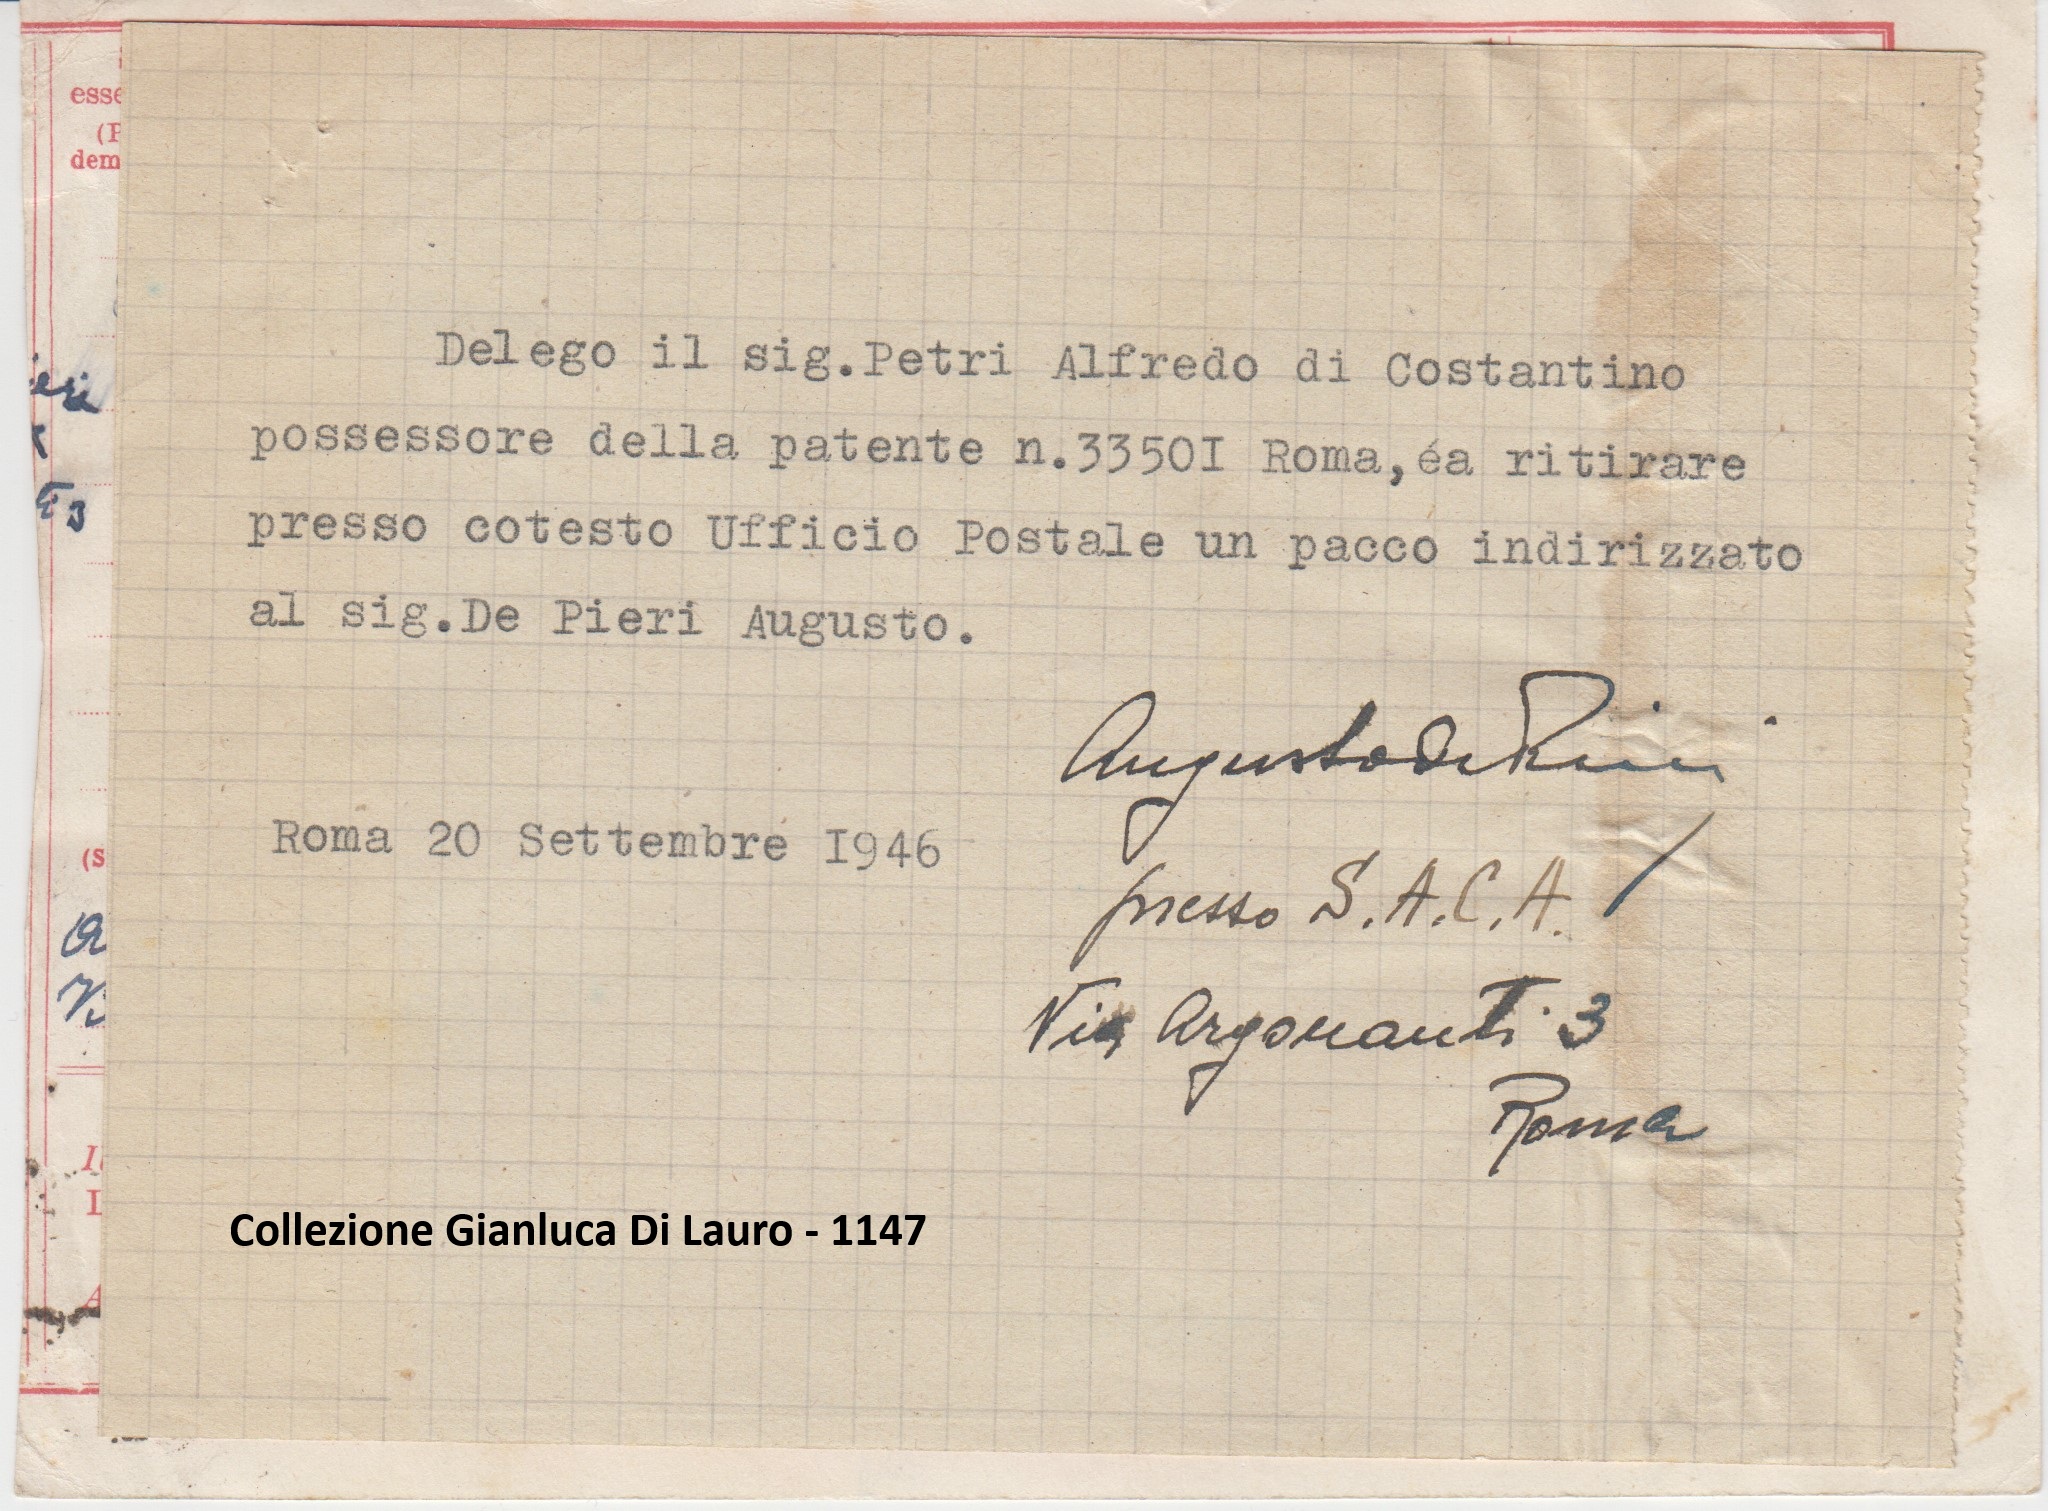 Delego il sig.Petri Alfredo di Costantino
possessore della patente n.3350I Roma,éa ritirare
presso cotesto Ufficio Postale un pacco indirizzato
al sig.De Pieri Augusto.
Augusto De Pieri
presso S.A.C.A.
Roma 20 Settembre I946
Via Argonauti 3
Roma
Collezione Gianluca Di Lauro - 1147
esse
(P
dem
ieri
ti 3
(S
A
Vi